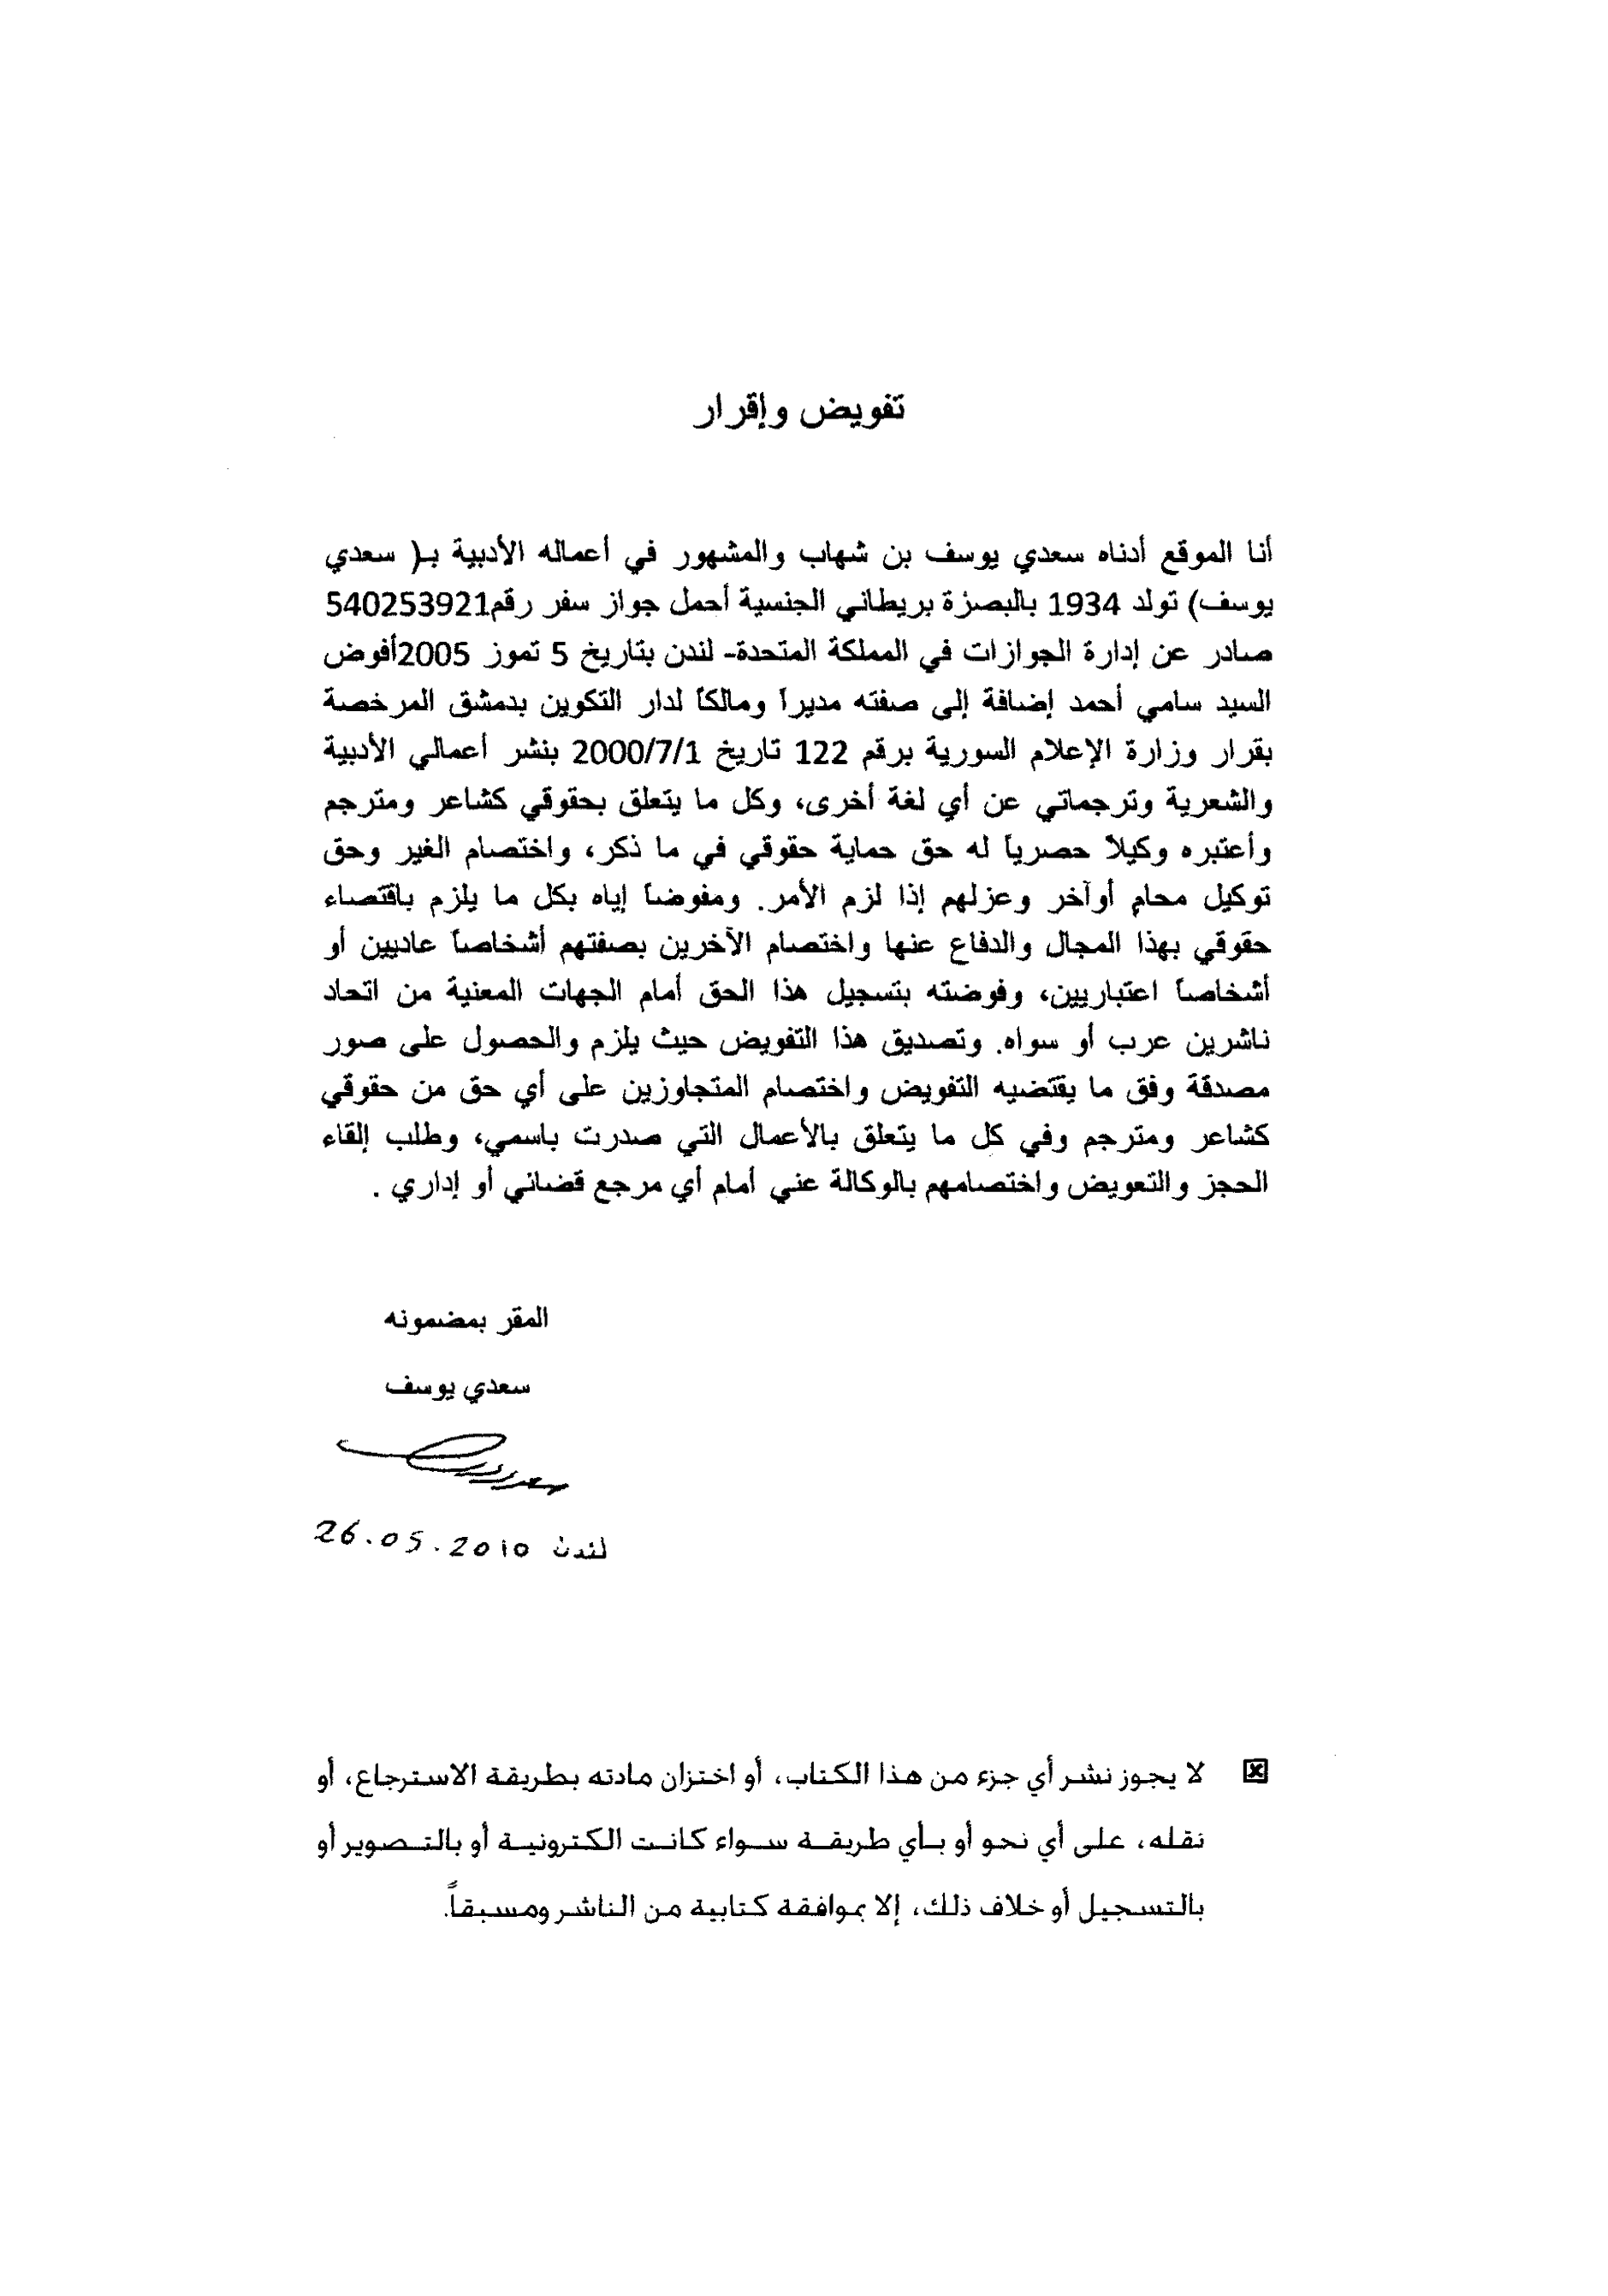 تفويض وإقرار
أنا الموقع أدناه سعدي يوسف بن شهاب والمشهور في أعماله الأدبية بـ( سعدي
يوسف) تولد 1934 بالبصرة بريطاني الجنسية أحمل جواز سفر رقم540253921
صادر عن إدارة الجوازات في المملكة المتحدة- لندن بتاريخ 5 تموز 2005أفوض
السيد سامي أحمد إضافة إلى صفته مديراً ومالكاً لدار التكوين بدمشق المرخصة
بقرار وزارة الإعلام السورية برقم 122 تاريخ 2000/7/1 بنشر أعمالي الأدبية
والشعرية وترجماتي عن أي لغة أخرى، وكل ما يتعلق بحقوقي كشاعر ومترجم
وأعتبره وكيلاً حصرياً له حق حماية حقوقي في ما ذكر، واختصام الغير وحق
توكيل محامٍ أوآخر وعزلهم إذا لزم الأمر. ومفوضاً إياه بكل ما يلزم باقتصاء
حقوقي بهذا المجال والدفاع عنها واختصام الآخرين بصفتهم أشخاصاً عاديين أو
أشخاصاً اعتباريين، وفوضته بتسجيل هذا الحق أمام الجهات المعنية من اتحاد
ناشرين عرب أو سواه. وتصديق هذا التفويض حيث يلزم والحصول على صور
مصدقة وفق ما يقتضيه التفويض واختصام المتجاوزين على أي حق من حقوقي
كشاعر ومترجم وفي كل ما يتعلق بالأعمال التي صدرت باسمي، وطلب إلقاء
الحجز والتعويض واختصامهم بالوكالة عني أمام أي مرجع قضائي أو إداري .
المقر بمضمونه
سعدي يوسف
لندن 26.05.2010
لا يجوز نشر أي جزء من هذا الكتاب، أو اختزان مادته بطريقة الاسترجاع، أو
نقله، على أي نحو أو بأي طريقة سواء كانت الكترونية أو بالتصوير أو
بالتسجيل أو خلاف ذلك، إلا بموافقة كتابية من الناشر ومسبقاً.